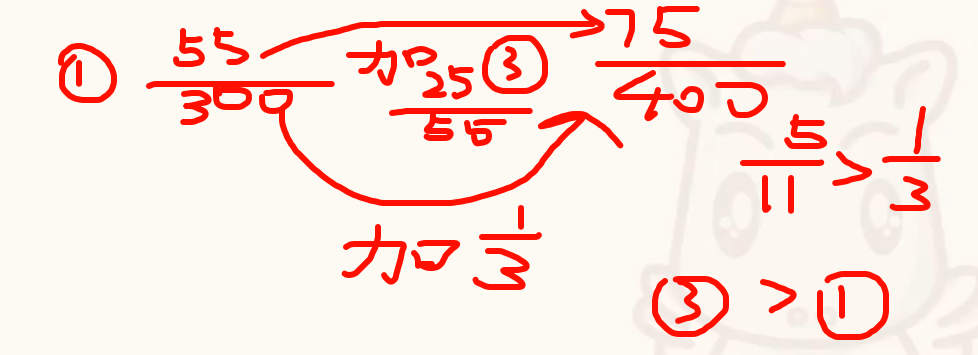 ① 55/300 加25/55 ③ 75/400
加1/3
5/11 > 1/3
③ > ①